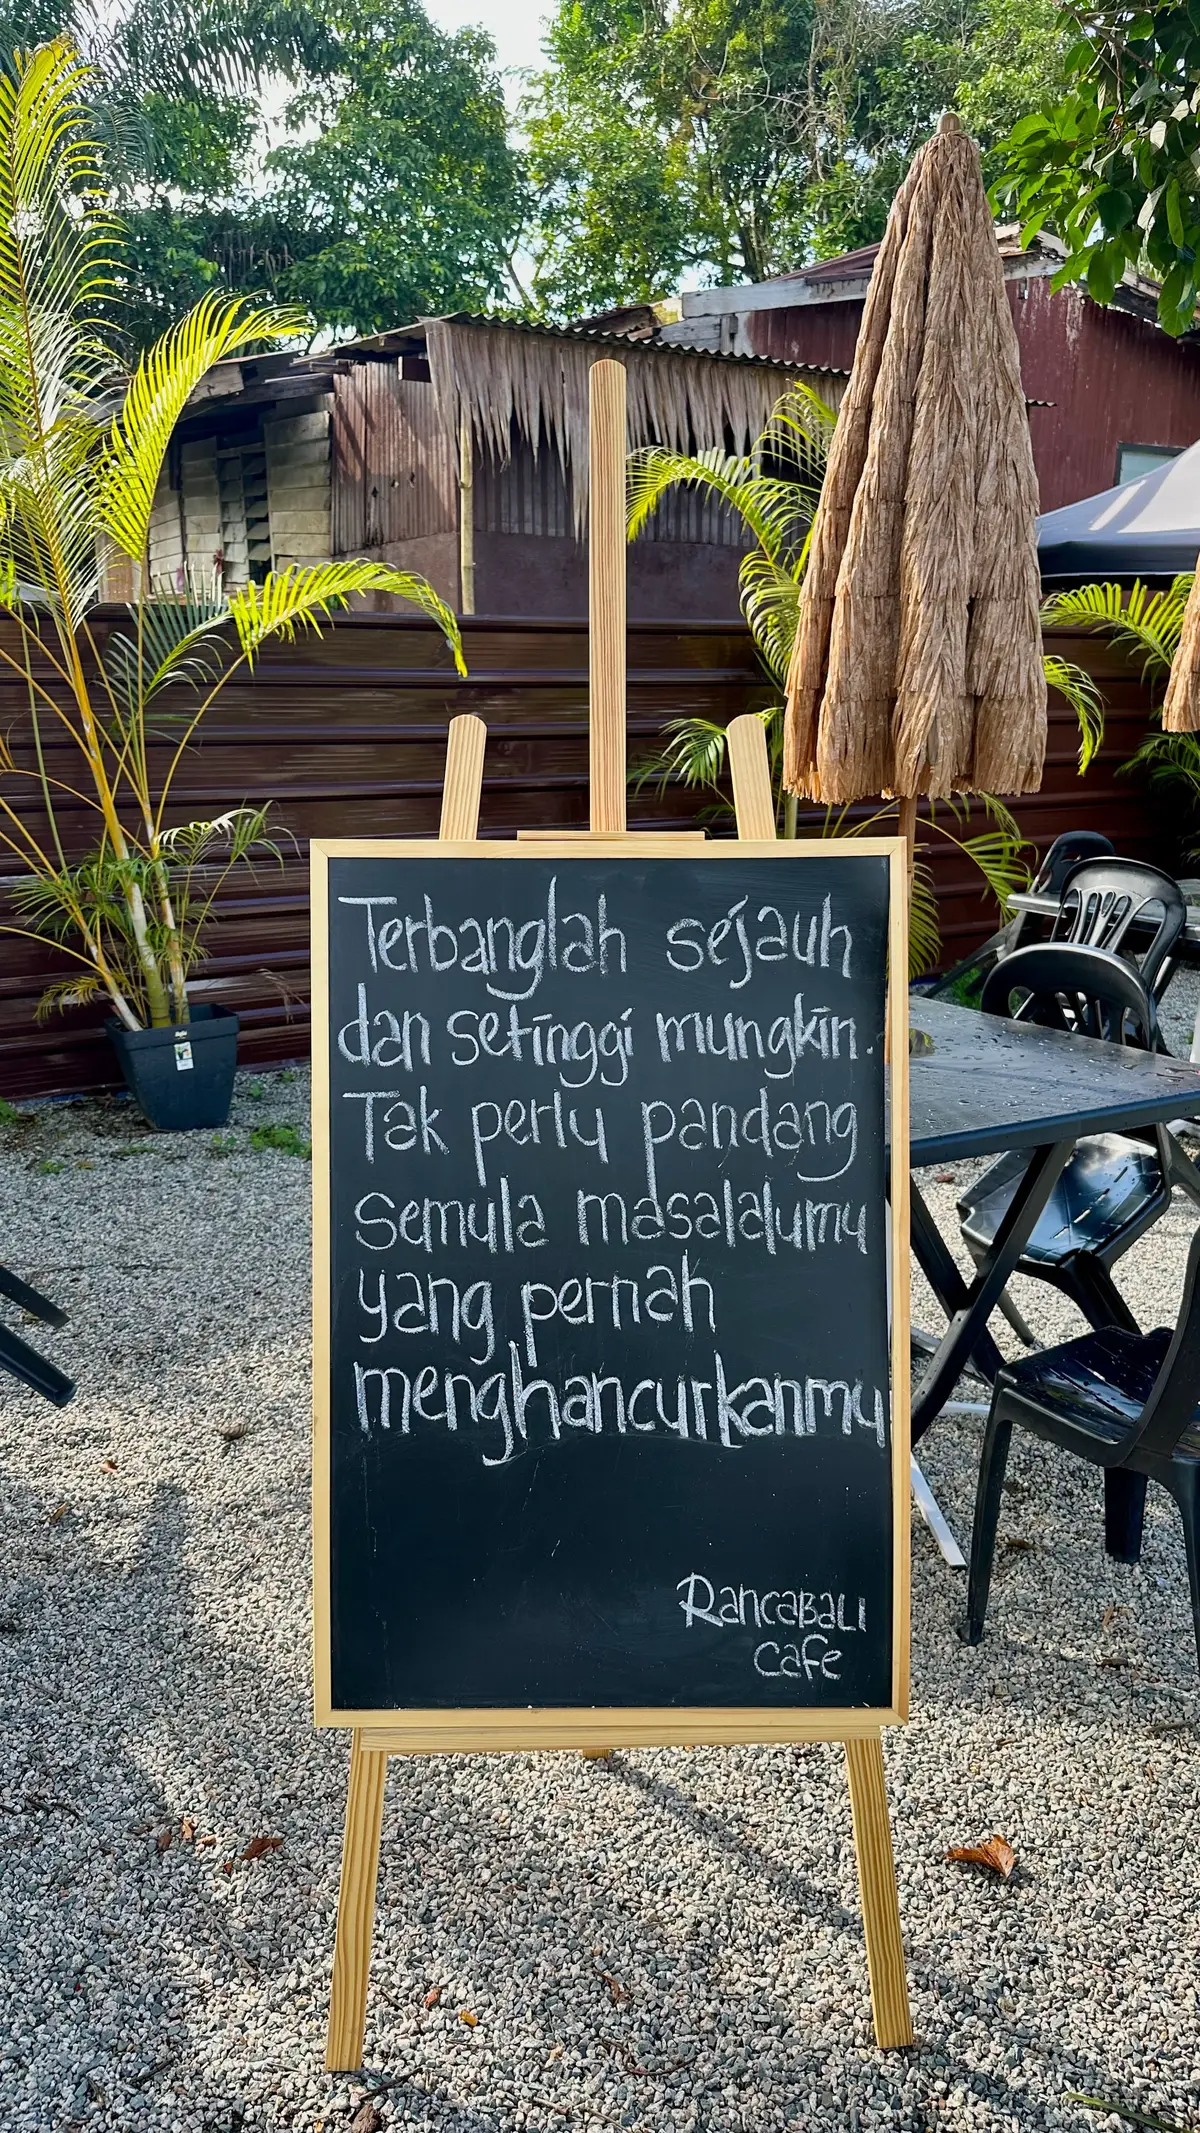 Terbanglah sejauh
dan setinggi mungkin.
Tak perlu pandang
semula masalalumu
yang pernah
menghancurkanmu
Rancabali
cafe